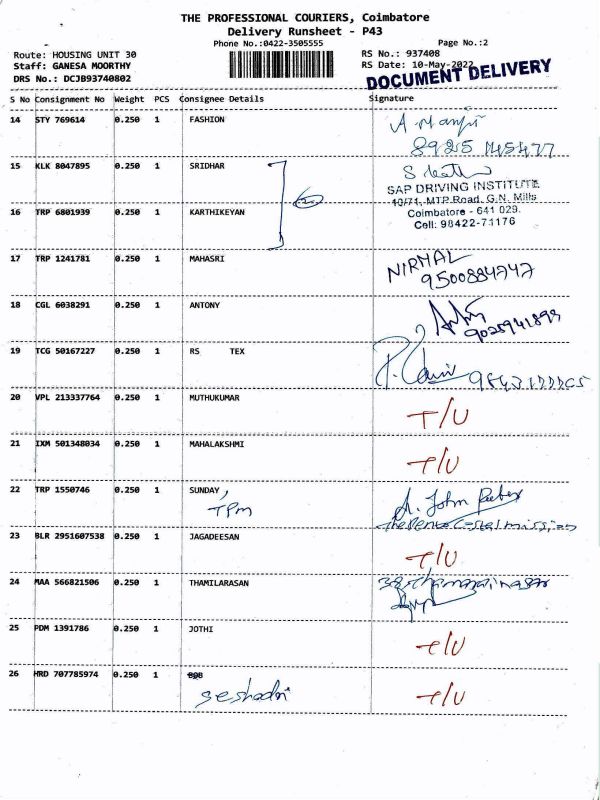 THE PROFESSIONAL COURIERS, Coimbatore
Delivery Runsheet - P43
Phone No.:0422-3505555
Page No.:2
Route: HOUSING UNIT 30
RS No.: 937408
Staff: GANESA MOORTHY
RS Date: 10-May-2022
DRS No.: DCJB93740802
DOCUMENT DELIVERY
S No Consignment No Weight PCS Consignee Details Signature
14 STY 769614 0.250 1 FASHION
15 KLK 8047895 0.250 1 SRIDHAR
SAP DRIVING INSTITUTE
10/71, MTP Road, G.N. Mills
16 TRP 6801939 0.250 1 KARTHIKEYAN
Coimbatore - 641 029.
Cell: 98422-71176
17 TRP 1241781 0.250 1 MAHASRI
NIRMAL
9500884747
18 CGL 6038291 0.250 1 ANTONY
19 TCG 50167227 0.250 1 RS TEX
20 VPL 213337764 0.250 1 MUTHUKUMAR T/U
21 IXM 501348034 0.250 1 MAHALAKSHMI T/U
22 TRP 1550746 0.250 1 SUNDAY,
TPM
A. John
23 BLR 2951607538 0.250 1 JAGADEESAN T/U
24 MAA 566821506 0.250 1 THAMILARASAN
25 PDM 1391786 0.250 1 JOTHI T/U
26 HRD 707785974 0.250 1
Seshadri T/U